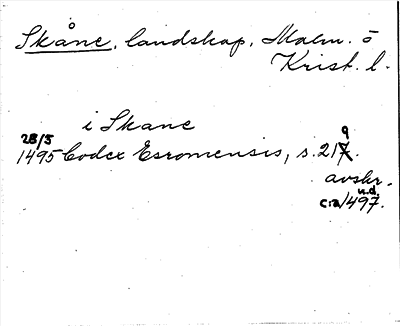 Skåne, landskap, Malm. o
Krist. l.
i Skane
28/5 1495 Codex Esromensis, s. 219.
avskr.
u.d.
c:a/497.